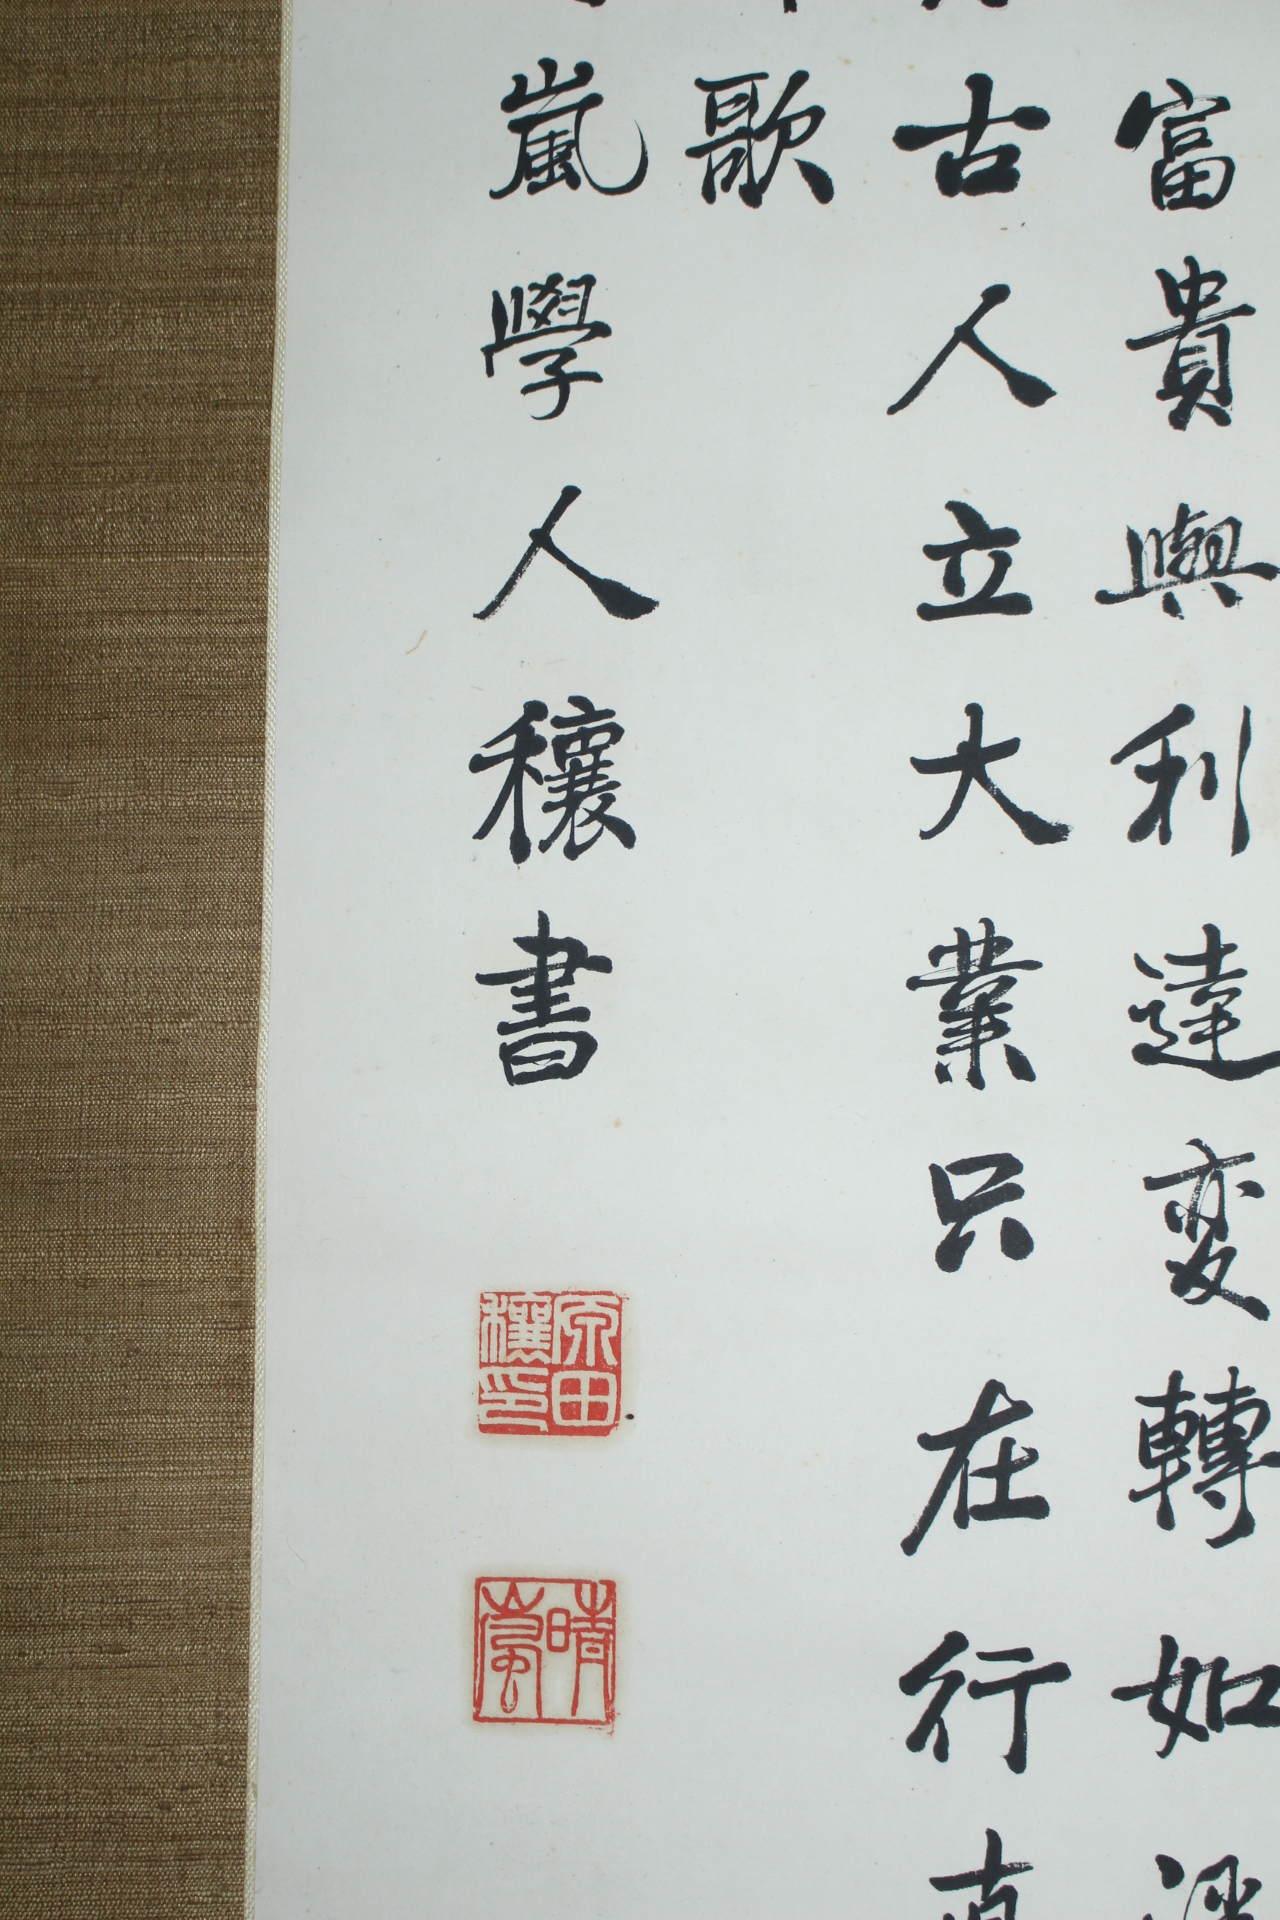 富貴與利達変轉如浮
古人立大業只在行直
歌
嵐學人穰書
原田穰印
晴嵐